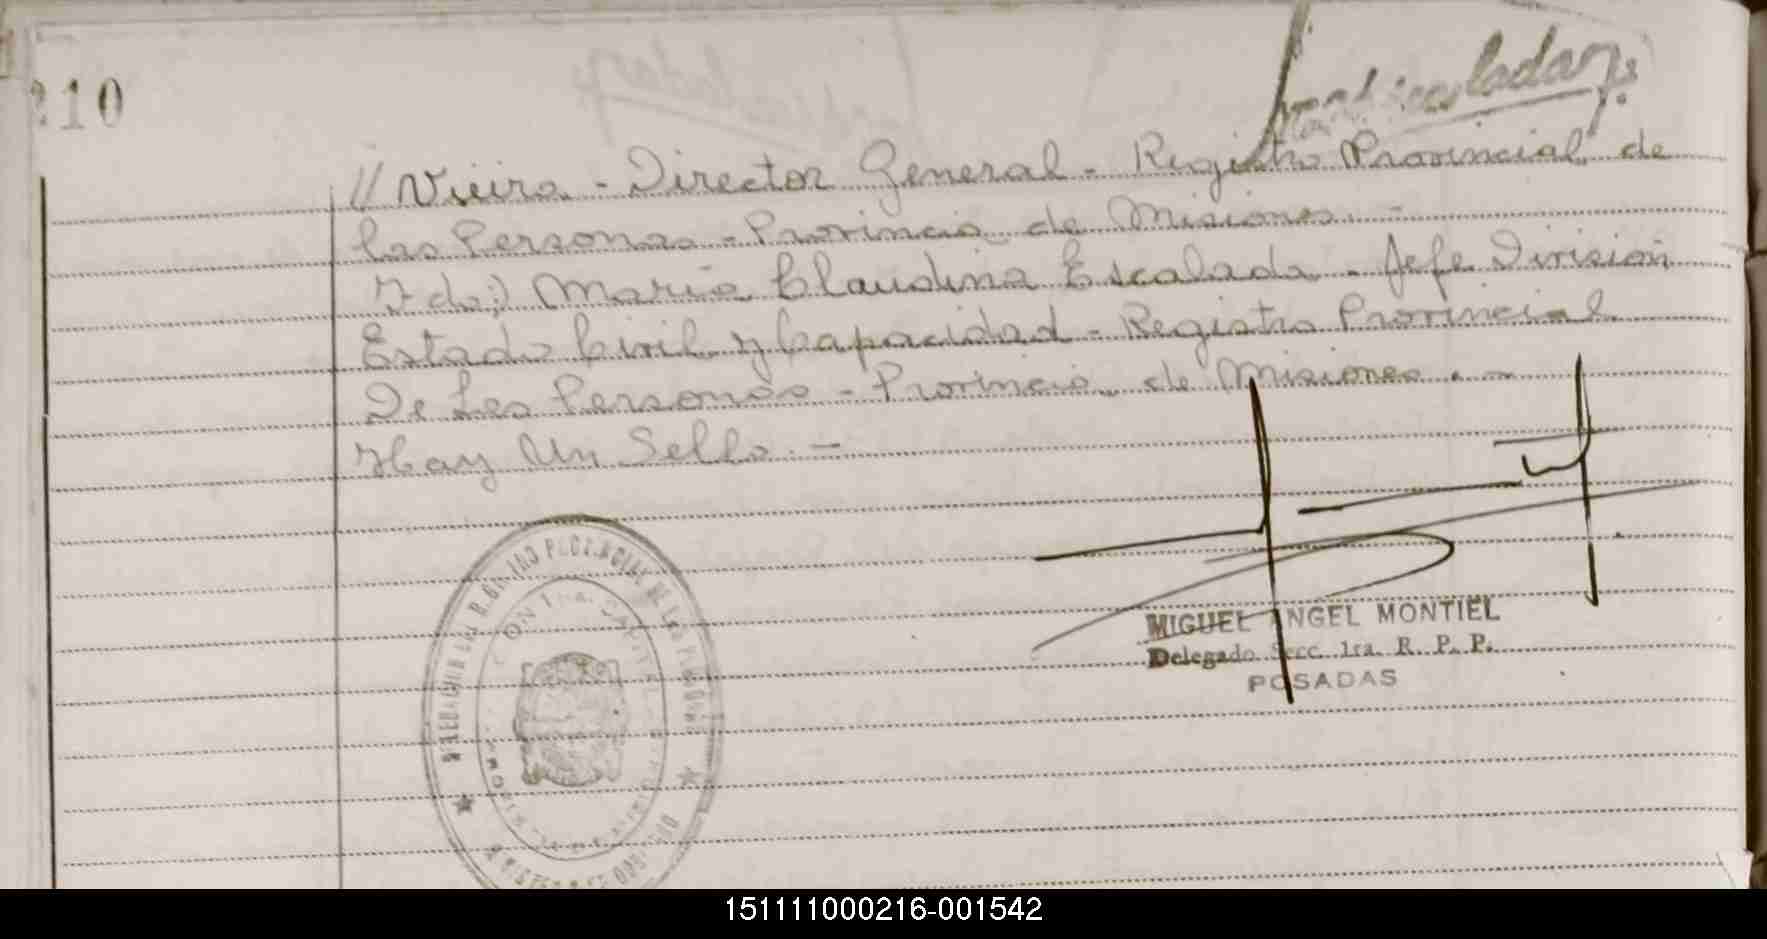 210
// Vieira - Director General - Registro Provincial de
las Personas - Provincia de Misiones. -
Fdo:) Maria Claudina Escalada - Jefe Division
Estado Civil y Capacidad - Registro Provincial
De Las Personas - Provincia de Misiones. -
Hay Un Sello. -
MIGUEL ANGEL MONTIEL
Delegado Secc. 1ra. R. P. P.
POSADAS
151111000216-001542